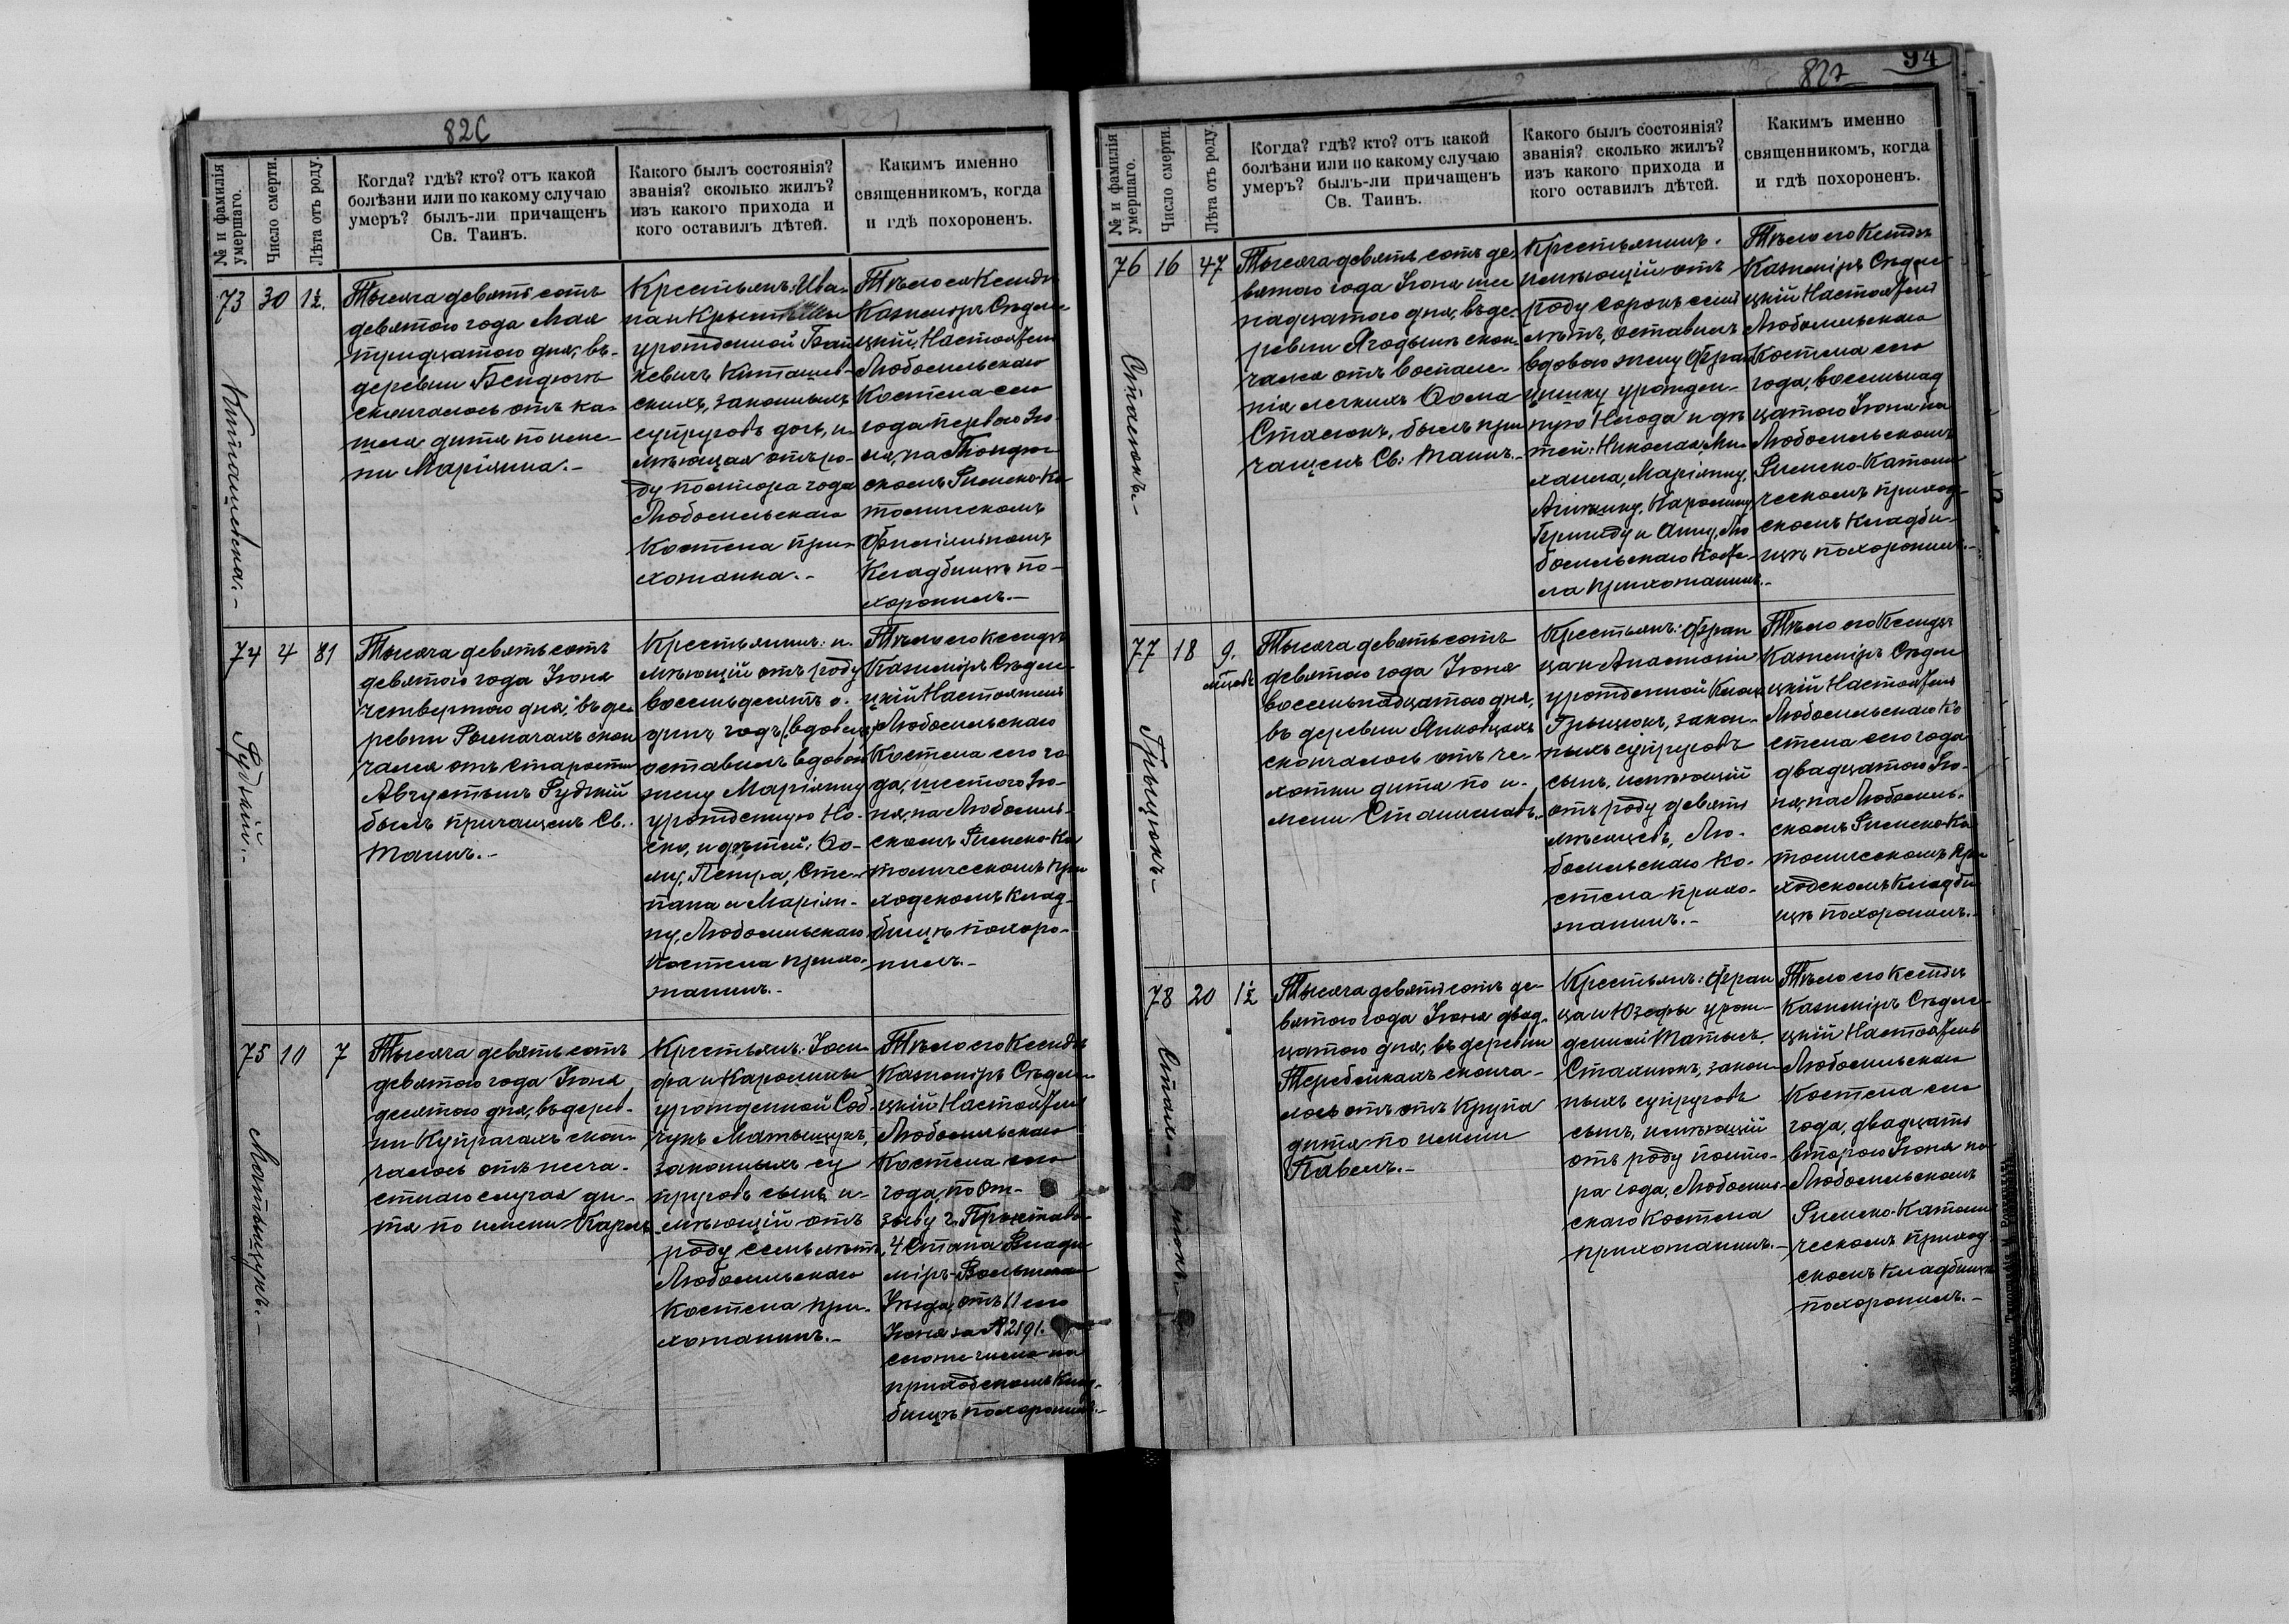 82C
№ и фамилія умершаго.
Число смерти.
Лѣта отъ роду.
Когда? гдѣ? кто? отъ какой
болѣзни или по какому случаю
умеръ? былъ-ли причащенъ
Св. Таинъ.
Какого былъ состоянія?
званія? сколько жилъ?
изъ какого прихода и
кого оставилъ дѣтей.
Какимъ именно
священникомъ, когда
и гдѣ похороненъ.
73
30
1½.
Тысяча девять сотъ
девятого года Мая
тридцатого дня, въ
деревни Бендюгѣ
скончалось отъ ка-
шля дитя по име-
ни Маріянна.-
Крестьянъ: Ива-
на и Крыст
урожденной
невичъ
скихъ, законныхъ
супруговъ дочь, и-
мѣющая отъ ро-
ду полтора года
Любомльскаго
Костела при-
хожанка.-
Тѣло ея Ксендзъ
Казиміръ Сѣдле-
цкій, Настоятель
Любомльскаго
Костела сего
года перваго Ію-
ня, на
скомъ Римско-Ка-
толическомъ
Филіяльномъ
Кладбищѣ по-
хоронилъ.-
74
4
81
Рудзкій.-
Тысяча девять сотъ
девятого года Іюня
четвертого дня, въ де-
ревни Рымачахъ скон
чался отъ старости
Августынъ Рудзкій
былъ причащенъ Св.
Таинъ.-
Крестьянинъ: и-
мѣющій отъ роду
восемьдесятъ о-
динъ годъ, (вдовецъ)
оставилъ вдовою
жену Маріянну
урожденную Но-
ско, и дѣтей: Ѳо-
му, Петра, Сте-
пана и Маріян-
ну, Любомльскаго
Костела прихо-
жанинъ.-
Тѣло его Ксендзъ
Казиміръ Сѣдле-
цкій Настоятель
Любомльскаго
Костела сего го
да, шестого Ію-
ня, на Любомль-
скомъ Римско-Ка
толическомъ При
ходскомъ Клад-
бищѣ похоро-
нилъ.-
75
10
7
Матыщукъ.-
Тысяча девять сотъ
девятого года Іюня
десятого дня, въ дерев-
ни Купрачахъ скон-
чалось отъ несча-
стнаго случая ди-
тя по имени Кароль
Крестьянъ: Іоси-
фа и Каролины
урожденной Соб-
чукъ Матыщукъ,
законныхъ су
пруговъ сынъ, и-
мѣющій отъ
роду семь лѣтъ,
Любомльскаго
Костела при-
хожанинъ.-
Тѣло его Ксендзъ
Казиміръ Сѣдле-
цкій Настоятель
Любомльскаго
Костела сего
года, по от-
зыву г. Пристава
4 Стана Влади
міръ-Волынскаго
Уѣзда, отъ 11 сего
Іюня за № 2191.
сегоже числа на
приходскомъ Клад-
бищѣ похоронилъ.-
94
827
№ и фамилія умершаго.
Число смерти.
Лѣта отъ роду.
Когда? гдѣ? кто? отъ какой
болѣзни или по какому случаю
умеръ? былъ-ли причащенъ
Св. Таинъ.
Какого былъ состоянія?
званія? сколько жилъ?
изъ какого прихода и
кого оставилъ дѣтей.
Какимъ именно
священникомъ, когда
и гдѣ похороненъ.
76
16
47
Стасюкъ.-
Тысяча девять сотъ де-
вятого года Іюня шес
надцатого дня, въ де-
ревни Ягодынъ скон-
чался отъ воспале-
нія легкихъ Ѳома
Стасюкъ, былъ при
чащенъ Св: Таинъ.-
Крестьянинъ.
имѣющій отъ
роду сорокъ семь
лѣтъ, оставилъ
вдовою жену Фран
цишку урожден-
ную и дѣ
тей: Николая, Ми-
хаила, Маріянну,
Каролину,
и Анну, Лю
бомльскаго Косте-
ла прихожанинъ.-
Тѣло его Ксендзъ
Казиміръ Сѣдле-
цкій Настоятель
Любомльскаго
Костела сего
года, восемьнад
цатого Іюня на
Любомльскомъ
Римско-Католи
ческомъ приход-
скомъ Кладби-
щѣ похоронилъ.-
77
18
9. мѣсяцевъ
Грыцюкъ.-
Тысяча девять сотъ
девятого года Іюня
восемьнадцатого дня,
въ деревни Янковцахъ
скончалось отъ че-
хотки дитя по и-
мени Станиславъ.-
Крестьянъ: Фран
ца и Анастасіи
урожденной
Грыцюкъ, закон-
ныхъ супруговъ
сынъ, имѣющій
отъ роду девять
мѣсяцевъ, Лю-
бомльскаго Ко-
стела прихо-
жанинъ.-
Тѣло его Ксендзъ
Казиміръ Сѣдле
цкій Настоятель
Любомльскаго Ко
стела сего года
двадцатого Ію-
ня, на Любомль-
скомъ Римско-Ка
толическомъ При
ходскомъ Кладби
щѣ похоронилъ.-
78
20
1½
Тысяча девять сотъ де-
вятого года Іюня двад-
цатого дня, въ деревни
Теребейкахъ сконча-
лось отъ отъ Крупа
дитя по имени
Павелъ.-
Крестьянъ: Фран
ца и Юзефы урож-
денной Матысъ,
законныхъ супруговъ
сынъ, имѣющій
отъ роду полто-
ра года, Любомль-
скаго Костела
прихожанинъ.-
Тѣло его Ксендзъ
Казиміръ Сѣдле-
цкій Настоятель
Любомльскаго
Костела сего
года, двадцать
второго Іюня на
Любомльскомъ
Римско-Католи-
ческомъ приход-
скомъ Кладбищѣ
похоронилъ.-